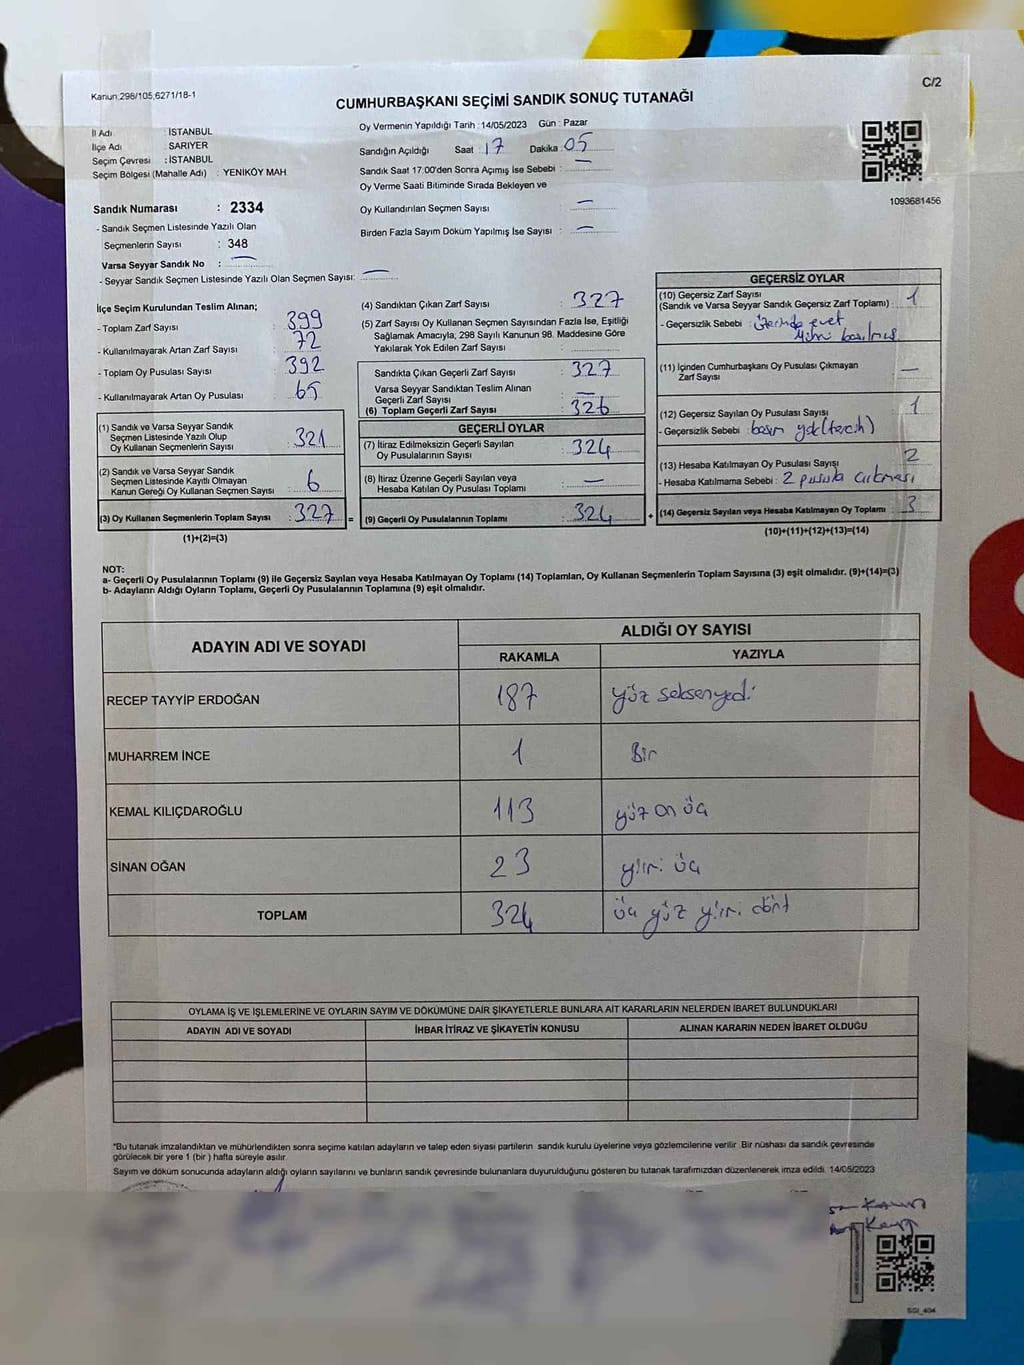 C/2
Kanun:298/105,6271/18-1
CUMHURBAŞKANI SEÇİMİ SANDIK SONUÇ TUTANAĞI
İl Adı : İSTANBUL
İlçe Adı : SARIYER
Seçim Çevresi : İSTANBUL
Seçim Bölgesi (Mahalle Adı) : YENİKÖY MAH
Sandık Numarası : 2334
- Sandık Seçmen Listesinde Yazılı Olan
Seçmenlerin Sayısı : 348
Varsa Seyyar Sandık No : —
- Seyyar Sandık Seçmen Listesinde Yazılı Olan Seçmen Sayısı: —
Oy Vermenin Yapıldığı Tarih : 14/05/2023 Gün : Pazar
Sandığın Açıldığı Saat : 17 Dakika : 05
Sandık Saat 17.00'den Sonra Açımış İse Sebebi : —
Oy Verme Saati Bitiminde Sırada Bekleyen ve
Oy Kullandırılan Seçmen Sayısı : —
Birden Fazla Sayım Döküm Yapılmış İse Sayısı : —
1093681456
İlçe Seçim Kurulundan Teslim Alınan;
- Toplam Zarf Sayısı : 399
- Kullanılmayarak Artan Zarf Sayısı : 72
- Toplam Oy Pusulası Sayısı : 392
- Kullanılmayarak Artan Oy Pusulası : 65
(1) Sandık ve Varsa Seyyar Sandık
Seçmen Listesinde Yazılı Olup
Oy Kullanan Seçmenlerin Sayısı : 321
(2) Sandık ve Varsa Seyyar Sandık
Seçmen Listesinde Kayıtlı Olmayan
Kanun Gereği Oy Kullanan Seçmen Sayısı : 6
(3) Oy Kullanan Seçmenlerin Toplam Sayısı : 327 =
(1)+(2)=(3)
(4) Sandıktan Çıkan Zarf Sayısı : 327
(5) Zarf Sayısı Oy Kullanan Seçmen Sayısından Fazla İse, Eşitliği
Sağlamak Amacıyla, 298 Sayılı Kanunun 98. Maddesine Göre
Yakılarak Yok Edilen Zarf Sayısı :
Sandıkta Çıkan Geçerli Zarf Sayısı : 327
Varsa Seyyar Sandıktan Teslim Alınan
Geçerli Zarf Sayısı : —
(6) Toplam Geçerli Zarf Sayısı : 326
GEÇERLİ OYLAR
(7) İtiraz Edilmeksizin Geçerli Sayılan
Oy Pusulalarının Sayısı : 324
(8) İtiraz Üzerine Geçerli Sayılan veya
Hesaba Katılan Oy Pusulası Toplamı : —
(9) Geçerli Oy Pusulalarının Toplamı : 324 +
GEÇERSİZ OYLAR
(10) Geçersiz Zarf Sayısı
(Sandık ve Varsa Seyyar Sandık Geçersiz Zarf Toplamı) : 1
- Geçersizlik Sebebi : üzerinde evet
mührü basılmış
(11) İçinden Cumhurbaşkanı Oy Pusulası Çıkmayan
Zarf Sayısı : —
(12) Geçersiz Sayılan Oy Pusulası Sayısı : 1
- Geçersizlik Sebebi : basım yok(tercih)
(13) Hesaba Katılmayan Oy Pusulası Sayısı : 2
- Hesaba Katılmama Sebebi : 2 pusula çıkması
(14) Geçersiz Sayılan veya Hesaba Katılmayan Oy Toplamı : 3
(10)+(11)+(12)+(13)=(14)
NOT:
a- Geçerli Oy Pusulalarının Toplamı (9) ile Geçersiz Sayılan veya Hesaba Katılmayan Oy Toplamı (14) Toplamları, Oy Kullanan Seçmenlerin Toplam Sayısına (3) eşit olmalıdır. (9)+(14)=(3)
b- Adayların Aldığı Oyların Toplamı, Geçerli Oy Pusulalarının Toplamına (9) eşit olmalıdır.
ADAYIN ADI VE SOYADI ALDIĞI OY SAYISI
RAKAMLA YAZIYLA
RECEP TAYYİP ERDOĞAN 187 yüz seksenyedi
MUHARREM İNCE 1 Bir
KEMAL KILIÇDAROĞLU 113 yüz on üç
SİNAN OĞAN 23 yirmi üç
TOPLAM 324 üç yüz yirmi dört
OYLAMA İŞ VE İŞLEMLERİNE VE OYLARIN SAYIM VE DÖKÜMÜNE DAİR ŞİKAYETLERLE BUNLARA AİT KARARLARIN NELERDEN İBARET BULUNDUKLARI
ADAYIN ADI VE SOYADI İHBAR İTİRAZ VE ŞİKAYETİN KONUSU ALINAN KARARIN NEDEN İBARET OLDUĞU
*Bu tutanak imzalandıktan ve mühürlendikten sonra seçime katılan adayların ve talep eden siyasi partilerin sandık kurulu üyelerine veya gözlemcilerine verilir. Bir nüshası da sandık çevresinde
görülecek bir yere 1 (bir) hafta süreyle asılır.
Sayım ve döküm sonucunda adayların aldığı oyların sayılarını ve bunların sandık çevresinde bulunanlara duyurulduğunu gösteren bu tutanak tarafımızdan düzenlenerek imza edildi. 14/05/2023